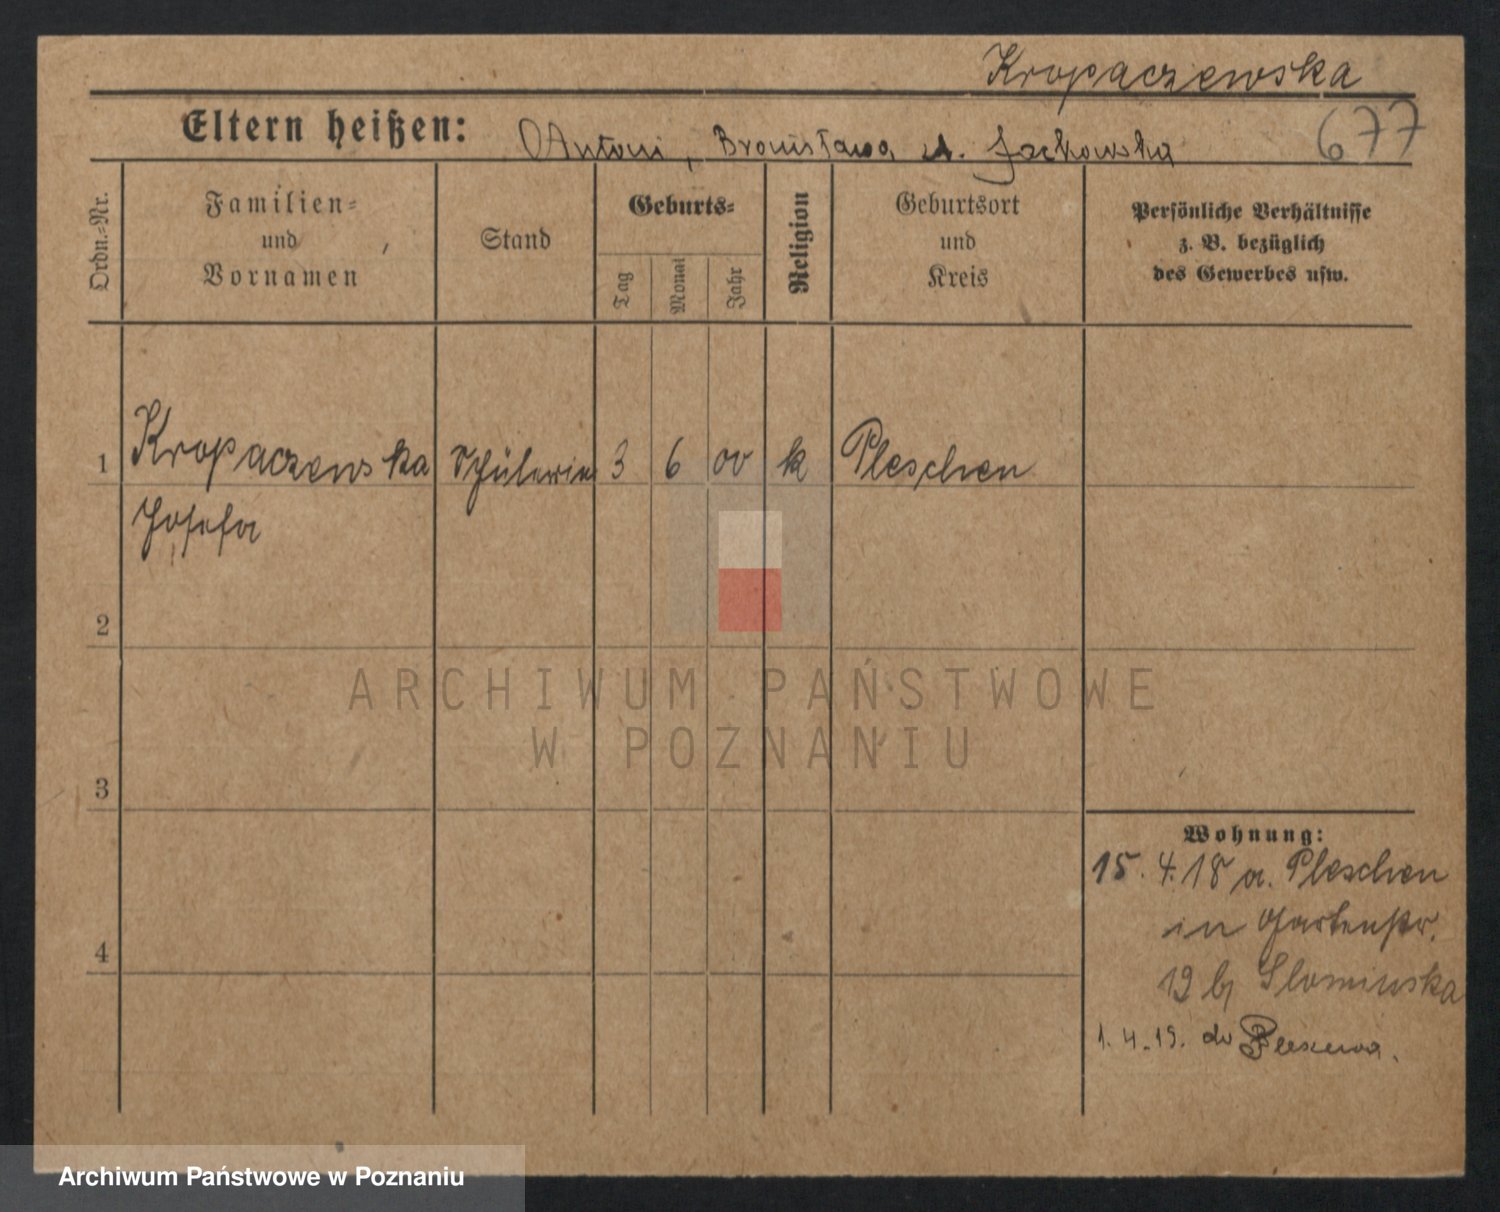 Kropaczewska
Eltern heißen: Antoni, Bronisława Jackowska 677
Ordn.-Nr.
Familien-
und
Vornamen
Stand
Geburts-
Tag
Monat
Jahr
Religion
Geburtsort
und
Kreis
Persönliche Verhältnisse
z. B. bezüglich
des Gewerbes usw.
1 Kropaczewska Schülerin 3 6 00 k Pleschen
Josefa
2
ARCHIWUM PAŃSTWOWE
W POZNANIU
3
Wohnung:
15. 4. 18 a. Pleschen
in Gartenstr.
19 b/ Slominska
4
1. 4. 19. do Pleszewa.
Archiwum Państwowe w Poznaniu